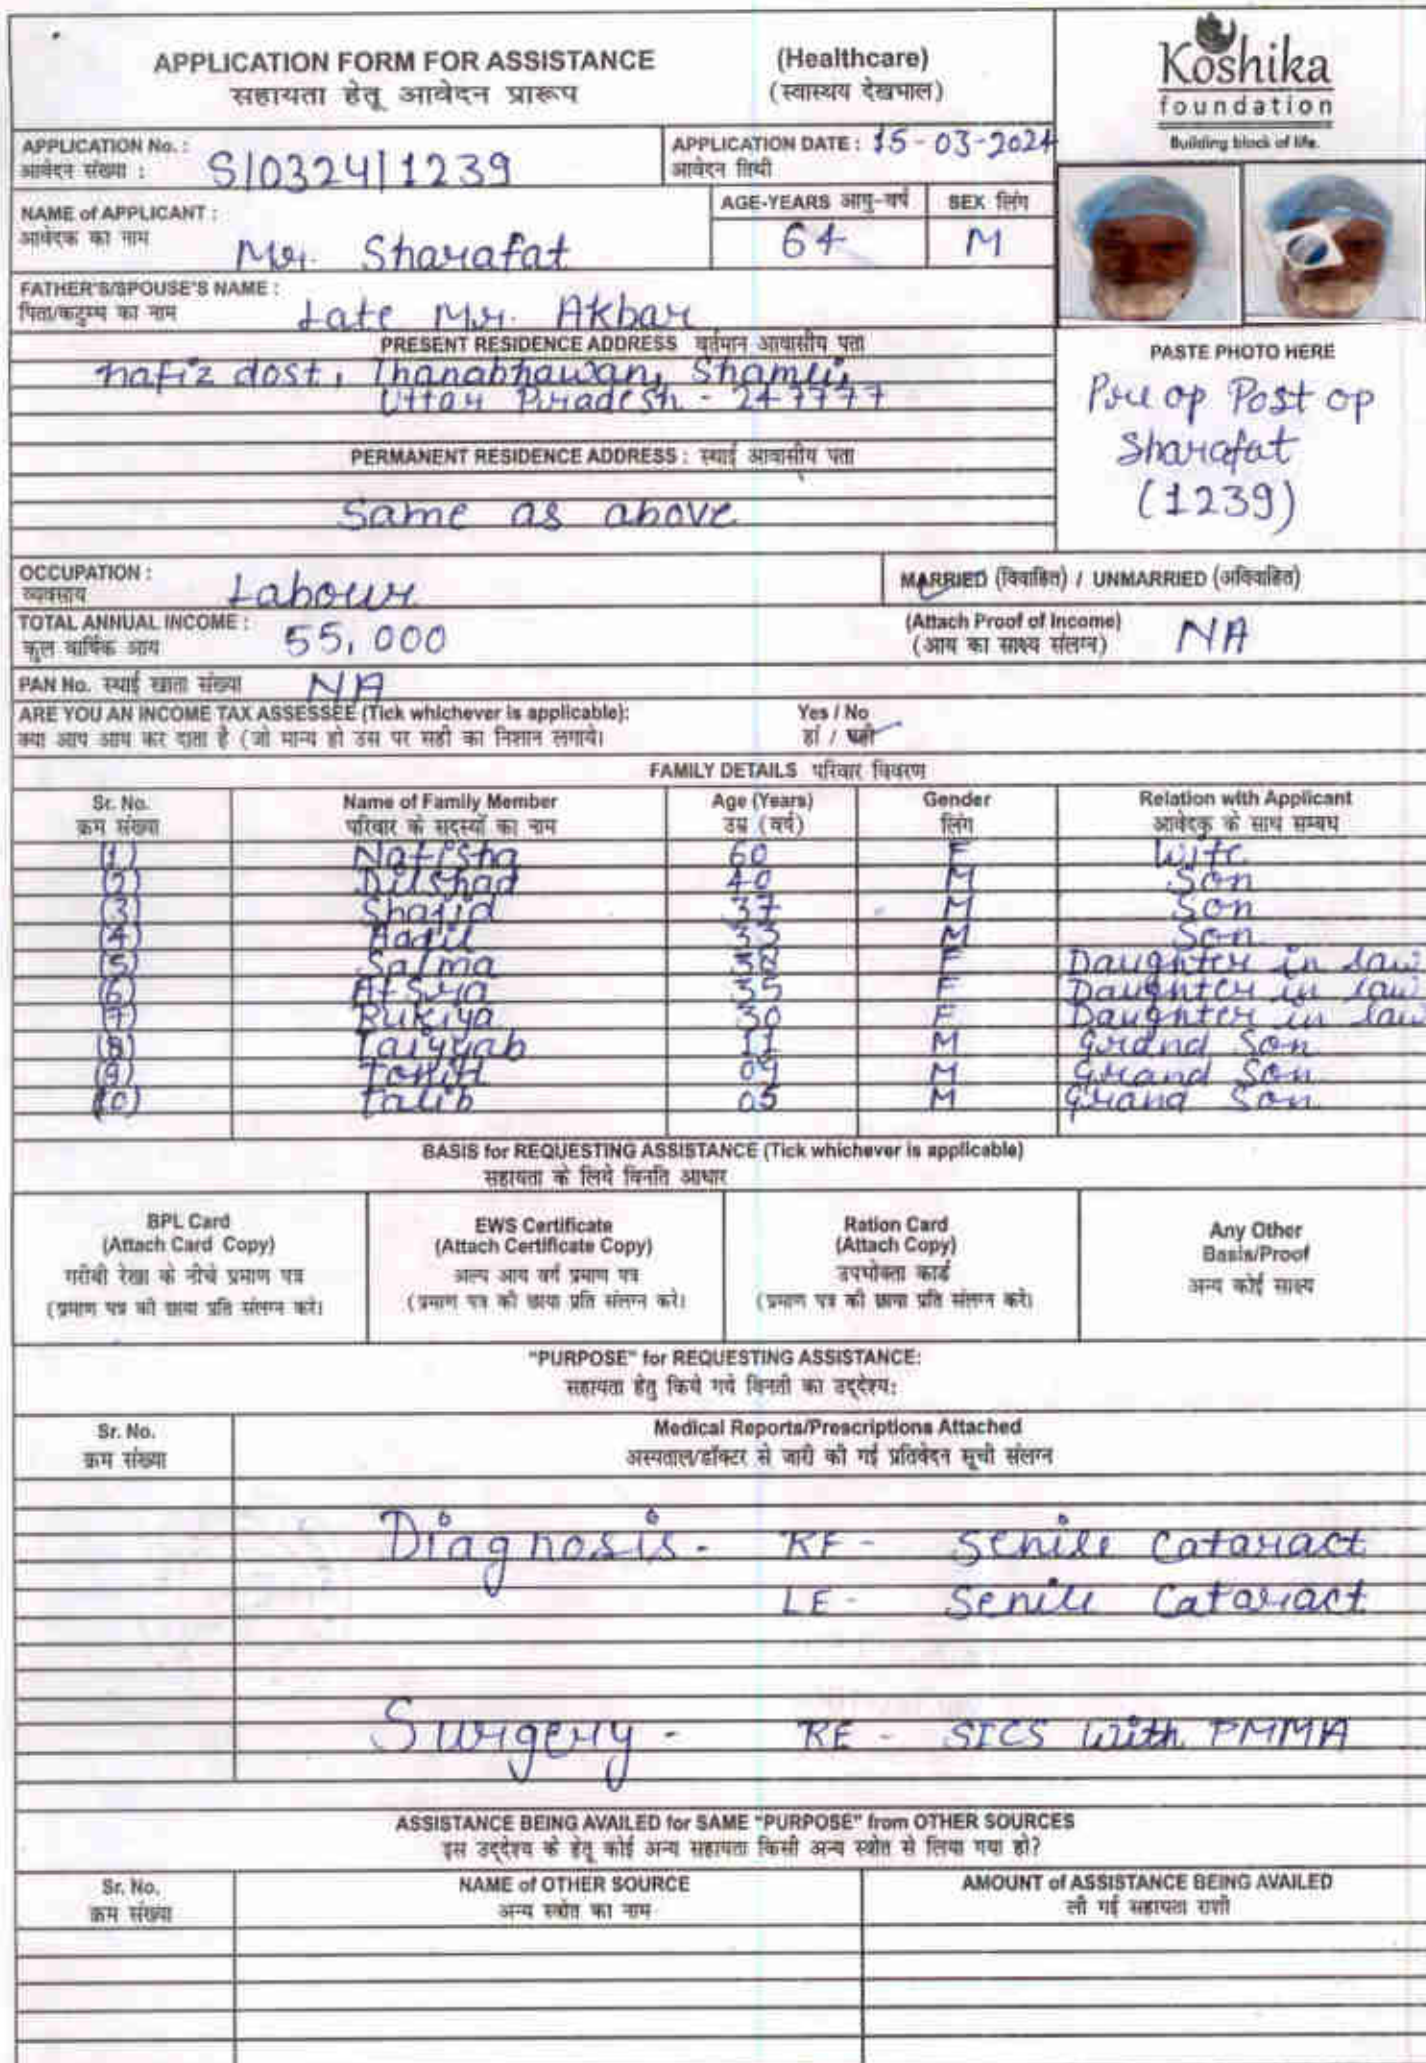 APPLICATION FORM FOR ASSISTANCE
सहायता हेतू आवेदन प्रारूप
(Healthcare)
(स्वास्थय देखभाल)
Koshika
foundation
Building block of life.
APPLICATION No. :
आवेदन संख्या :
S/0324/1239
APPLICATION DATE : 15-03-2024
आवेदन तिथी
NAME of APPLICANT :
आवेदक का नाम
Mr. Sharafat
AGE-YEARS आयु-वर्ष
64
SEX लिंग
M
FATHER'S/SPOUSE'S NAME :
पिता/कटुम्ब का नाम
Late Mr. Akbar
PRESENT RESIDENCE ADDRESS वर्तमान आवासीय पता
hafiz dost, Thanabhawan, Shamli,
Uttar Pradesh - 247777
PERMANENT RESIDENCE ADDRESS : स्थाई आवासीय पता
Same as above
PASTE PHOTO HERE
Pre op Post op
Sharafat
(1239)
OCCUPATION :
व्यवसाय
Labour
MARRIED (विवाहित) / UNMARRIED (अविवाहित)
TOTAL ANNUAL INCOME :
कुल वार्षिक आय
55,000
(Attach Proof of Income)
(आय का साक्ष्य संलग्न)
NA
PAN No. स्थाई खाता संख्या NA
ARE YOU AN INCOME TAX ASSESSEE (Tick whichever is applicable):
क्या आप आय कर दाता है (जो मान्य हो उस पर सही का निशान लगाये।
Yes / No
हां / नहीं
FAMILY DETAILS परिवार विवरण
Sr. No. Name of Family Member Age (Years) Gender Relation with Applicant
क्रम संख्या परिवार के सदस्यों का नाम उम्र (वर्ष) लिंग आवेदक के साथ सम्बध
(1) Nafisha 60 F Wife
(2) Dilshad 40 M Son
(3) Shajid 37 M Son
(4) Aaqil 33 M Son
(5) Salma 38 F Daughter in law
(6) Afsra 35 F Daughter in law
(7) Rukiya 30 F Daughter in law
(8) Taiyyab 11 M Grand Son
(9) 09 M Grand Son
(10) Talib 05 M Grand Son
BASIS for REQUESTING ASSISTANCE (Tick whichever is applicable)
सहायता के लिये विनति आधार
BPL Card
(Attach Card Copy)
गरीबी रेखा के नीचे प्रमाण पत्र
(प्रमाण पत्र की छाया प्रति संलग्न करे।
EWS Certificate
(Attach Certificate Copy)
अल्प आय वर्ग प्रमाण पत्र
(प्रमाण पत्र की छाया प्रति संलग्न करे।
Ration Card
(Attach Copy)
उपभोक्ता कार्ड
(प्रमाण पत्र की छाया प्रति संलग्न करे।
Any Other
Basis/Proof
अन्य कोई साक्ष्य
"PURPOSE" for REQUESTING ASSISTANCE:
सहायता हेतु किये गये विनती का उद्देश्य:
Sr. No.
क्रम संख्या
Medical Reports/Prescriptions Attached
अस्पताल/डॉक्टर से जारी की गई प्रतिवेदन सूची संलग्न
Diagnosis - RE - Senile Cataract
LE - Senile Cataract
Surgery - RE - SICS with PMMA
ASSISTANCE BEING AVAILED for SAME "PURPOSE" from OTHER SOURCES
इस उद्देश्य के हेतू कोई अन्य सहायता किसी अन्य स्त्रोत से लिया गया हो?
Sr. No. NAME of OTHER SOURCE AMOUNT of ASSISTANCE BEING AVAILED
क्रम संख्या अन्य स्त्रोत का नाम ली गई सहायता राशी